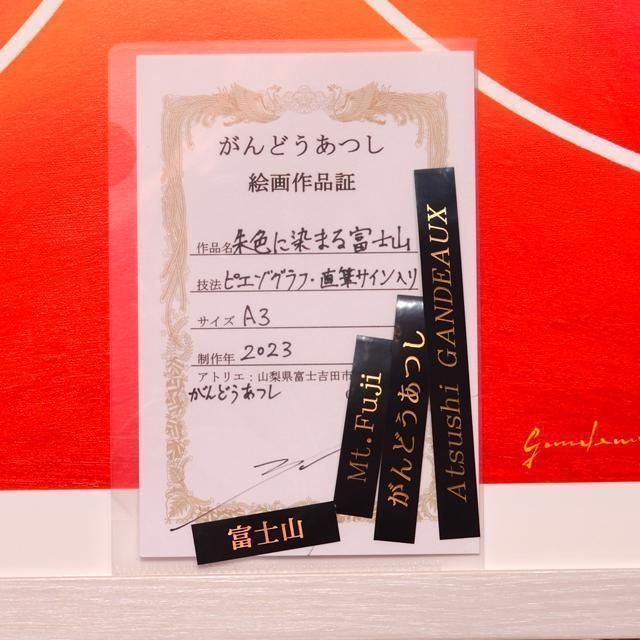 がんどうあつし
絵画作品証
作品名 朱色に染まる富士山
技法 ピエゾグラフ・直筆サイン入り
サイズ A3
制作年 2023
アトリエ：山梨県富士吉田市
がんどうあつし
Mt.Fuji
がんどうあつし
Atsushi GANDEAUX
富士山